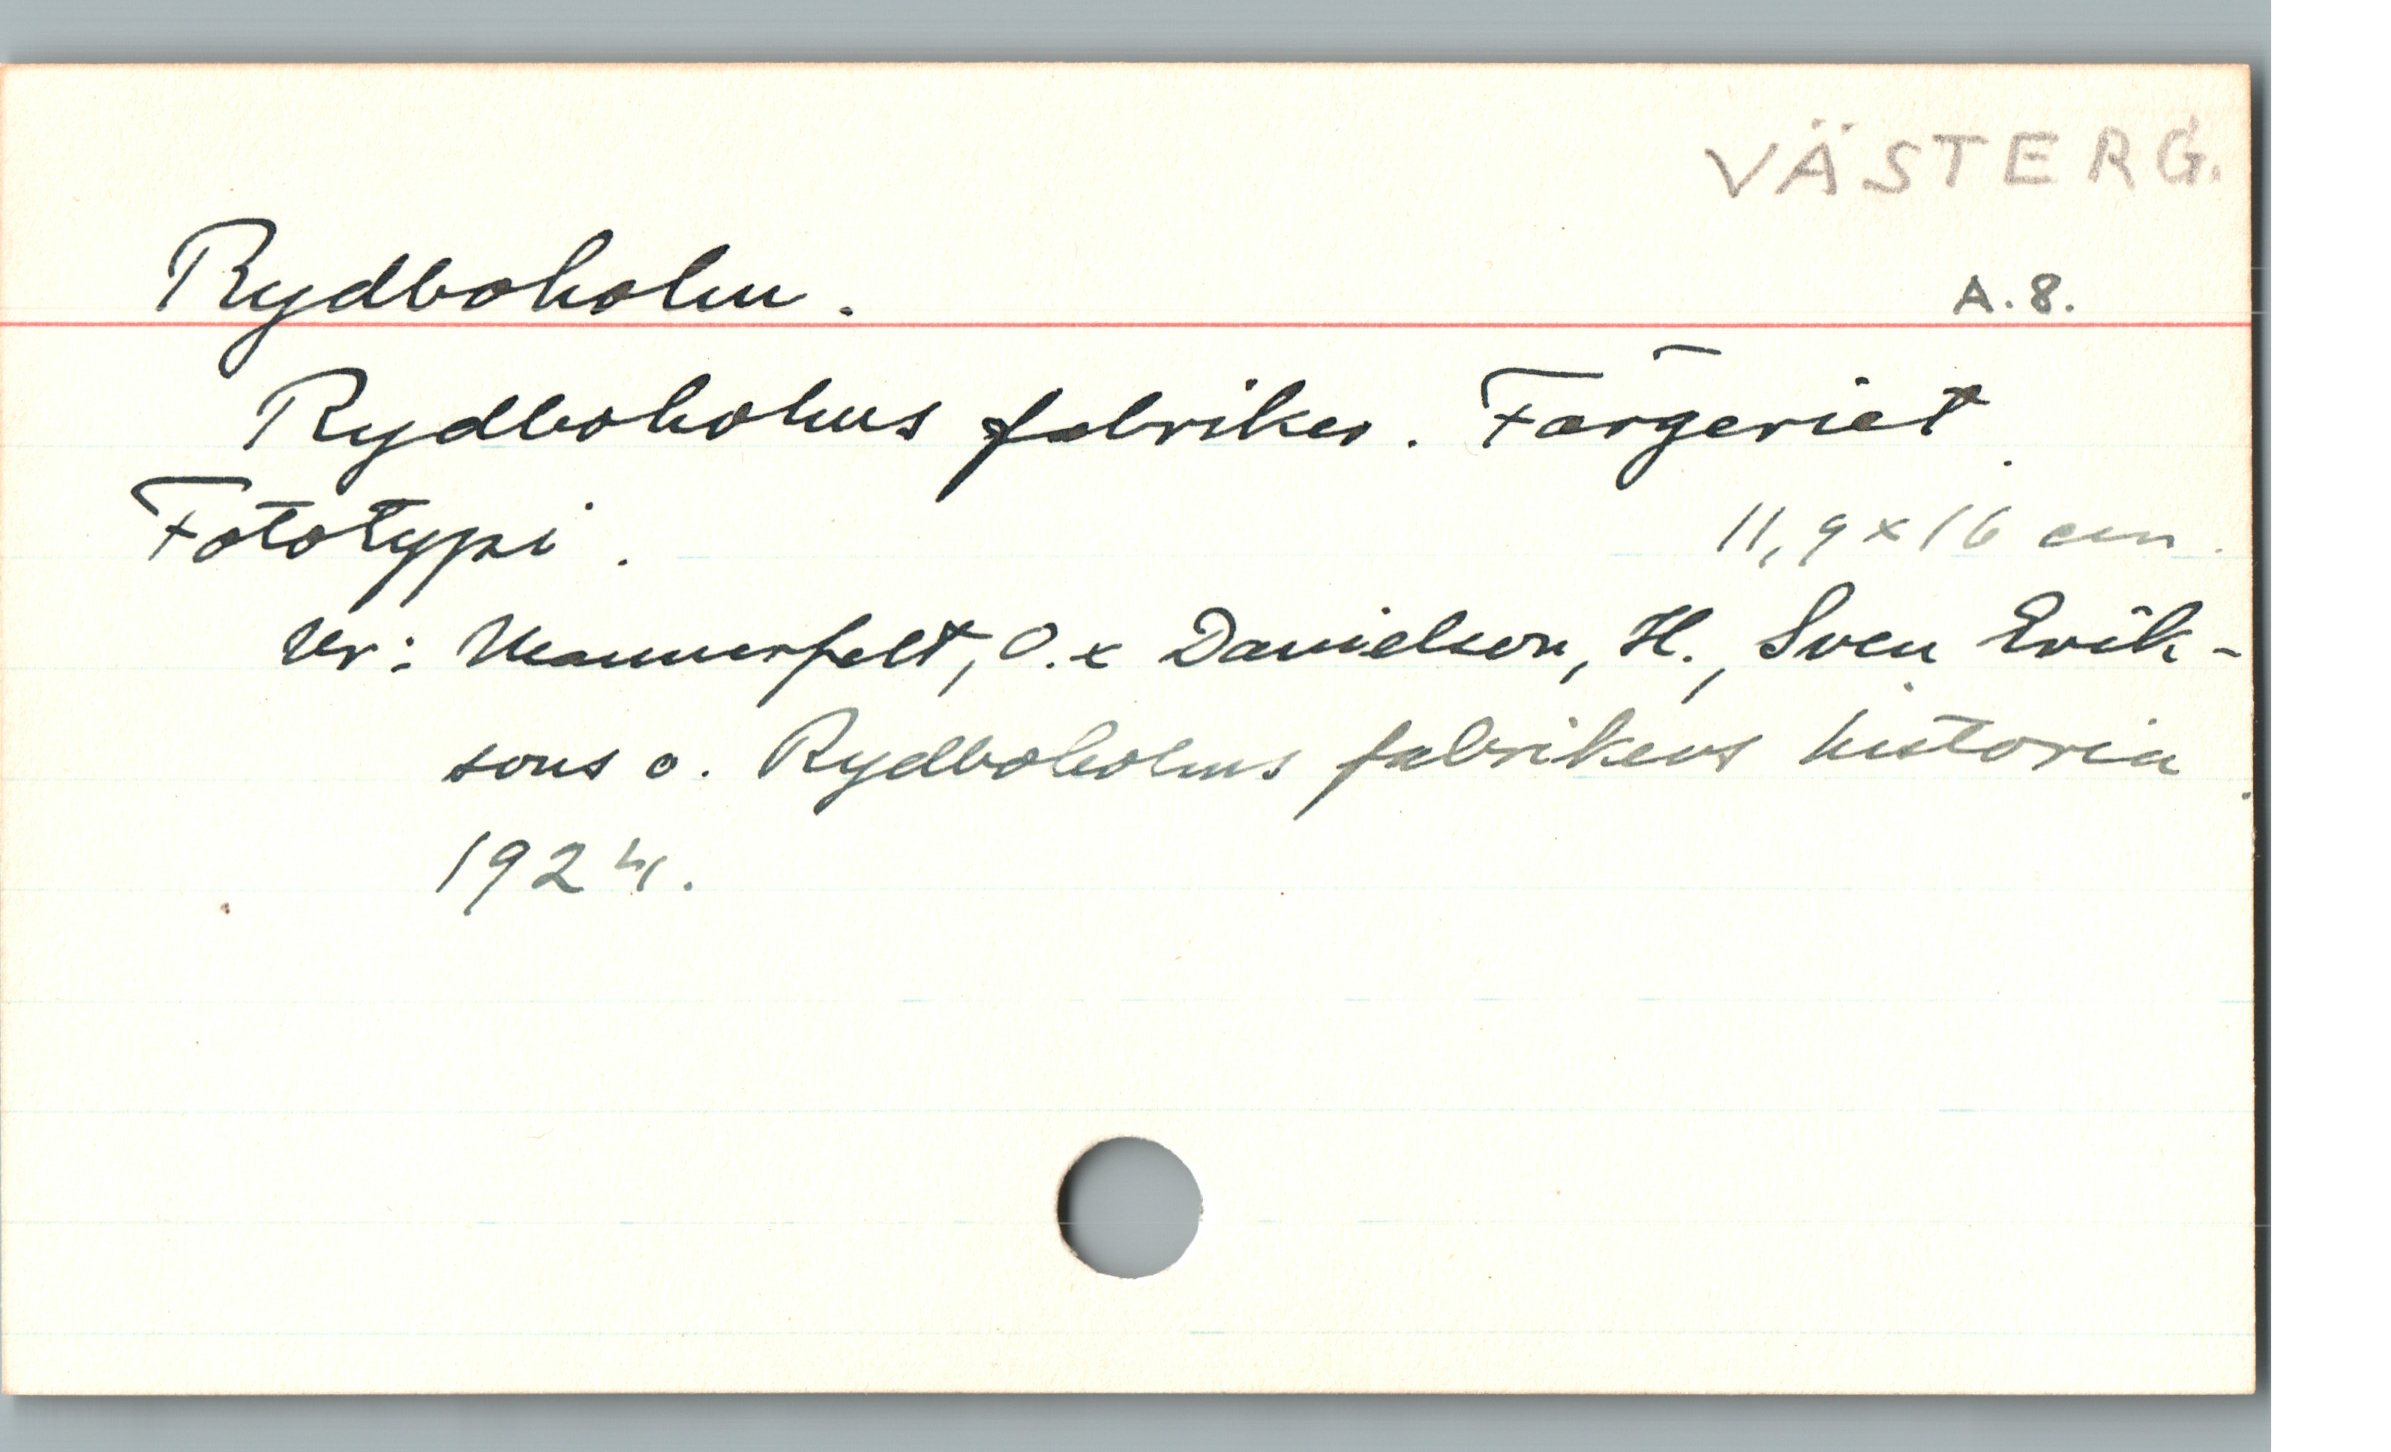 VÄSTERG.
Rydboholm.
A.8.
Rydboholms fabriker. Färgeriet.
Fototypi.
11,9 x 16 cm.
Ur: Mannerfelt, O. & Danielson, H., Sven Erik-
sons o. Rydboholms fabrikers historia.
1924.